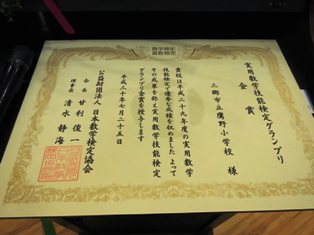 実用数学技能検定グランプリ
金賞
三郷市立鷹野小学校 様
貴校は平成二十九年度の実用数学
技能検定で優秀な成績を収めました よって
その成果を称え実用数学技能検定
グランプリ金賞を授与します
平成三十年七月二十五日
公益財団法人 日本数学検定協会
会長 甘利 俊一
理事長 清水 静海